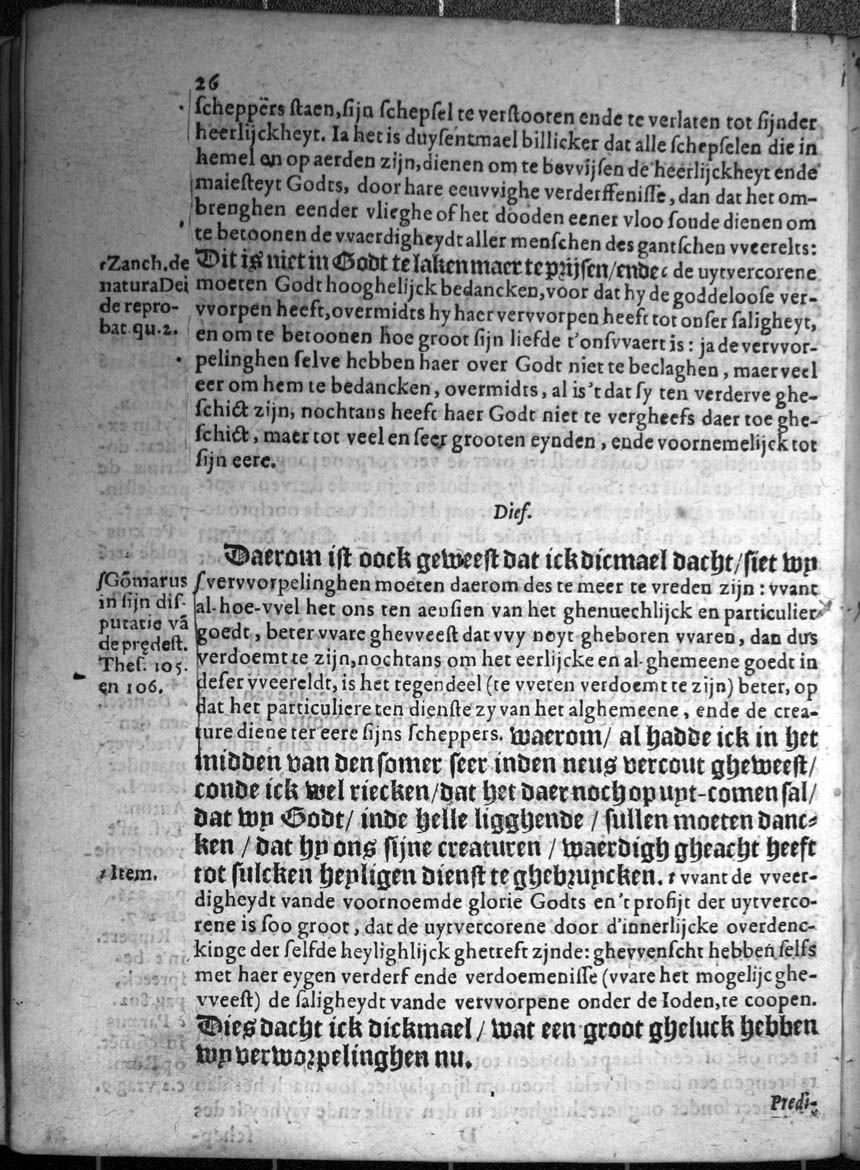 26
ſcheppers ſtaen, ſijn ſchepſel te verſtooren ende te verlaten tot ſijnder
heerlijckheyt. Ia het is duyſentmael billicker dat alle ſchepſelen die in
hemel en op aerden zijn, dienen om te bevvijſen de heerlijckheyt ende
maieſteyt Godts, door hare eeuvvighe verderffeniſſe, dan dat het om-
brenghen eender vlieghe of het dooden eener vloo ſoude dienen om
te betoonen de vvaerdigheydt aller menſchen des gantſchen vveerelts:
eZanch. de
naturaDei
de repro-
bat. qu. 2.
Dit is niet in Godt te laken maer te prijſen/ ende e de uytvercorene
moeten Godt hooghelijck bedancken, voor dat hy de goddelooſe ver-
vvorpen heeft, overmidts hy haer vervvorpen heeft tot onſer ſaligheyt,
en om te betoonen hoe groot ſijn liefde t'onſvvaert is: ja de vervvor-
pelinghen ſelve hebben haer over Godt niet te beclaghen, maer veel
eer om hem te bedancken, overmidts, al is't dat ſy ten verderve ghe-
ſchict zijn, nochtans heeft haer Godt niet te vergheefs daer toe ghe-
ſchict, maer tot veel en ſeer grooten eynden, ende voornemelijck tot
ſijn eere.
Dief.
Daerom iſt oock geweeſt dat ick dicmael dacht/ ſiet wy
ſGõmarus
in ſijn diſ-
putatie vã
de prędeſt.
Theſ. 105.
en 106.
ſ vervvorpelinghen moeten daerom des te meer te vreden zijn: vvant
al-hoe-vvel het ons ten aenſien van het ghenuechlijck en particulier
goedt, beter vvare ghevveeſt dat vvy noyt gheboren vvaren, dan dus
verdoemt te zijn, nochtans om het eerlijcke en al-ghemeene goedt in
deſer vveereldt, is het tegendeel (te vveten verdoemt te zijn) beter, op
dat het particuliere ten dienſte zy van het alghemeene, ende de crea-
ture diene ter eere ſijns ſcheppers. Waerom/ al hadde ick in het
midden van den ſomer ſeer inden neus vercout gheweeſt/
conde ick wel riecken/ dat het daer noch op uyt-comen ſal/
dat wy Godt/ inde helle ligghende / ſullen moeten danc-
ken / dat hy ons ſijne creaturen / waerdigh gheacht heeft
t Item.
tot ſulcken heyligen dienſt te ghebruycken. t vvant de vveer-
digheydt vande voornoemde glorie Godts en't profijt der uytverco-
rene is ſoo groot, dat de uytvercorene door d'innerlijcke overdenc-
kinge der ſelfde heylighlijck ghetreft zjnde: ghevvenſcht hebben ſelfs
met haer eygen verderf ende verdoemeniſſe (vvare het mogelijc ghe-
vveeſt) de ſaligheydt vande vervvorpene onder de Ioden, te coopen.
Dies dacht ick dickmael/ wat een groot gheluck hebben
wy verworpelinghen nu.
Predi-